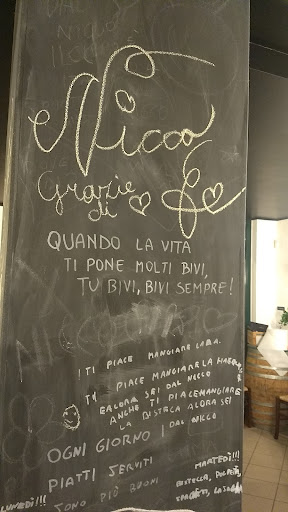 Nicco
Grazie
di
QUANDO LA VITA
TI PONE MOLTI BIVI,
TU BIVI, BIVI SEMPRE!
TI PIACE MANGIARE LOBA.
TU PIACE MANGIARE LA
EALORA SEI DAL NICCO
ANCHE TI PIACEMANGIARE
LA BISTECA ALORA SEI
DAL NICCO
OGNI GIORNO I
PIATTI SERVITI
SONO PIÙ BUONI
LUNEDÌ!!!
MARTEDÌ!!!
BISTECCA, POLPETE,
SPAGHETI, LASAGNA